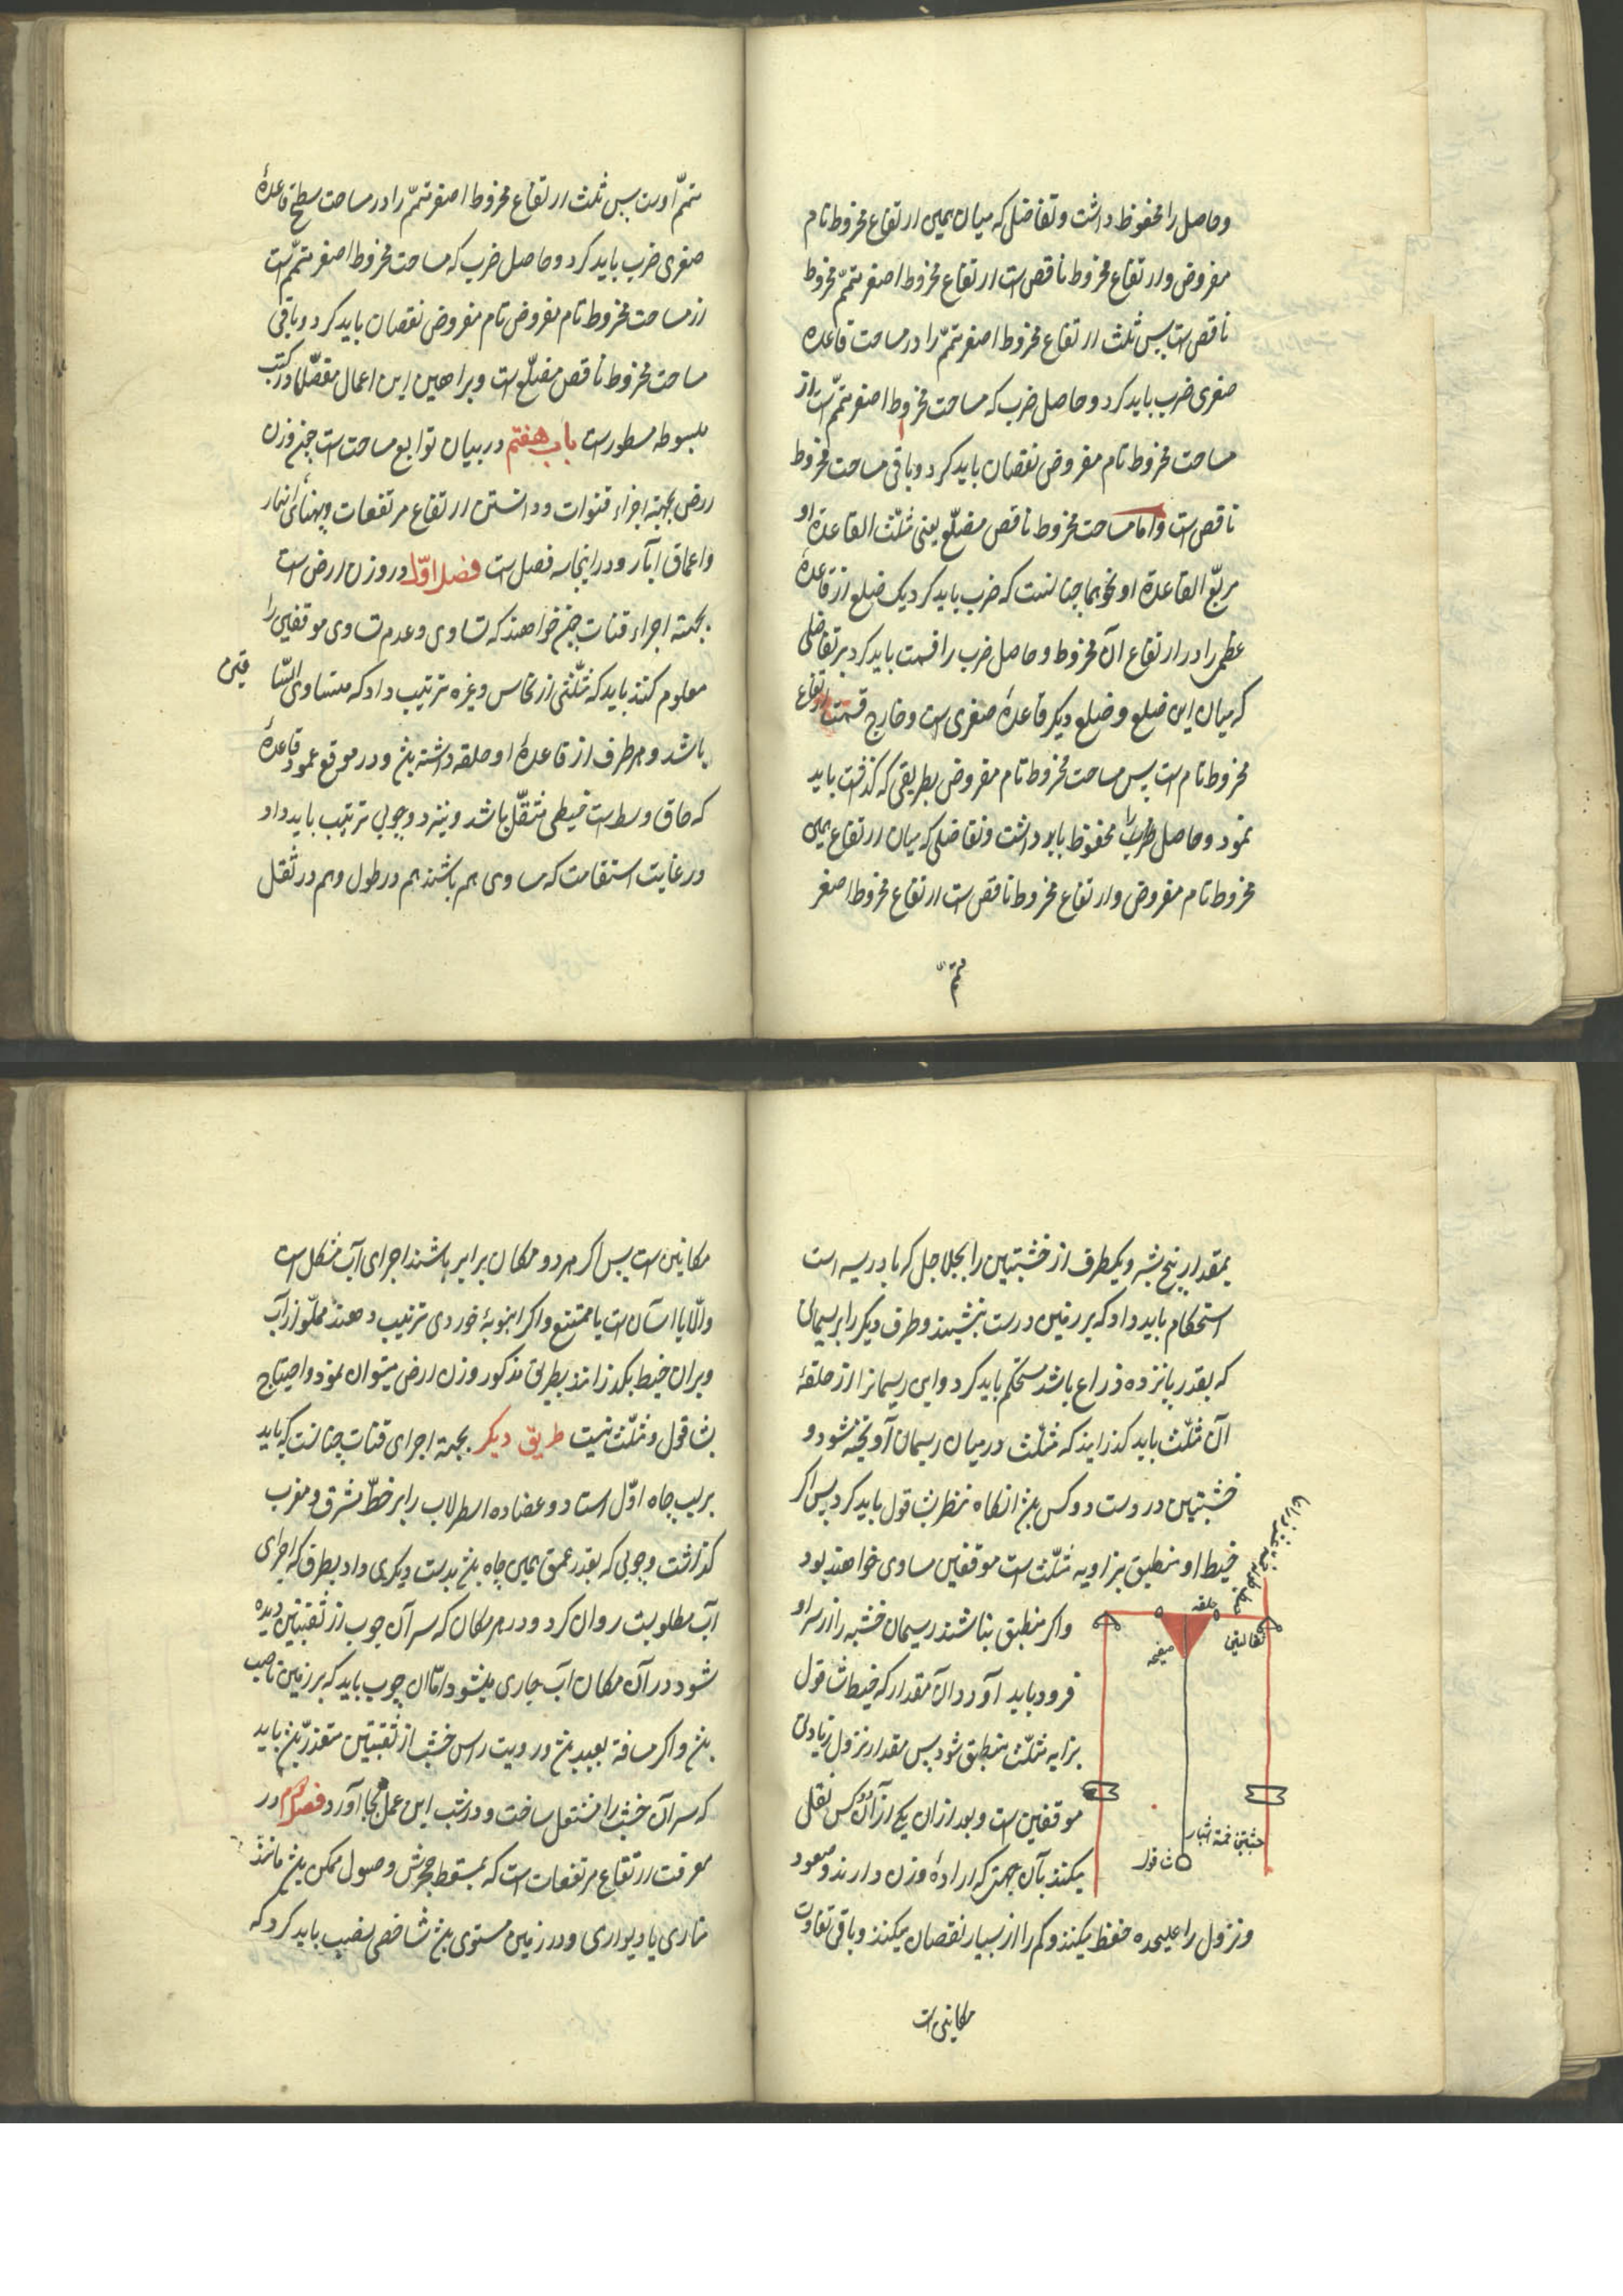 وحاصل را محفوظ داشت و تفاضل که میان همین ارتفاع مخروط تام
مفروض و ارتفاع مخروط ناقص است ارتفاع مخروط اصغر متمّم مخروط
ناقص است پس ثلث ارتفاع مخروط اصغر متمّم را در مساحت قاعده
صغری ضرب باید کرد و حاصل ضرب که مساحت مخروط اصغر متمّم است از
مساحت مخروط تام مفروض نقصان باید کرد و باقی مساحت مخروط
ناقص است و اما مساحت مخروط ناقص مضلّع یعنی مثلّث القاعدة او
مربّع القاعدة او نحوهما چنانست که ضرب باید کرد یک ضلع از قاعدهٔ
عظمی را در ارتفاع آن مخروط و حاصل ضرب را قسمت باید کرد بر تفاضلی
که میان این ضلع و ضلع دیگر قاعدهٔ صغری است و خارج قسمت ارتفاع
مخروط تام است پس مساحت مخروط تام مفروض بطریقی که گذشت باید
نمود و حاصل ضرب را محفوظ باید داشت و تفاضلی که میان ارتفاع همین
مخروط تام مفروض و ارتفاع مخروط ناقص است ارتفاع مخروط اصغر
متمّم
متمّم اوست پس ثلث ارتفاع مخروط اصغر متمّم را در مساحت سطح قاعدهٔ
صغری ضرب باید کرد و حاصل ضرب که مساحت مخروط اصغر متمّم است
از مساحت مخروط تام مفروض تام مفروض نقصان باید کرد و باقی
مساحت مخروط ناقص مضلّع است و براهین این اعمال مفصّلا در کتب
مبسوطه مسطور است باب هفتم در بیان توابع مساحت است چون وزن
ارض بجهة اجراء قنوات و دانستن ارتفاع مرتفعات و پهنای انهار
و اعماق آبار و در اینجا سه فصل است فصل اوّل در وزن ارض است
بجهة اجراء قنات چون خواهند که تساوی و عدم تساوی موقفین را
معلوم کنند باید که مثلّثی از نحاس و غیره ترتیب داد که متساوی السّا
قین
باشد و هر طرف از قاعدهٔ او حلقه داشته بشد و در موقع عمود قاعدهٔ
که حاق وسط است خیطی مثقّل باشد و نیز دو چوبی ترتیب باید داد
در غایت استقامت که مساوی هم باشند هم در طول و هم در ثقل
بمقدار پنج شبر و یکطرف از خشبتین را بجلاجل که بادریسه است
استحکام باید داد که بر زمین درست بنشیند و طرف دیگر را بریسمانی
که بقدر پانزده ذراع باشد مستحکم باید کرد و این ریسمانرا از حلقهٔ
آن مثلّث باید گذرانید که مثلّث در میان ریسمان آویخته شود و
خشبتین در دست دو کس بشد انگاه نظر بشاقول باید کرد پس اگر
خیط او منطبق بزاویه مثلّث است موقفین مساوی خواهند بود
و اگر منطبق بناشند ریسمان خشبه را از سر او
فرود باید آورد آن مقدار که خیط شاقول
بزایه مثلّث منطبق شود پس مقدار نزول زیادتی
موقفین است و بعد از آن یکی از آن دو کس نقل
میکند بآن جهتی که ارادهٔ وزن دارند و صعود
و نزول را علیحده حفظ میکنند و کم را از بسیار نقصان میکنند و باقی تفاوت
حلقه
صفحه
شاقول
خشبتین خمسة اشبار
مکانین است
مکانین است پس اگر هر دو مکان برابر باشند اجرای آب مشکل است
و الّا یا آسان است یا ممتنع و اگر انبوبهٔ خوردی ترتیب دهند مملّو از آب
و بران خیط بگذرانند بطریق مذکور وزن ارض میتوان نمود و احتیاج
بشاقول و مثلّث نیست طریق دیگر بجهة اجرای قنات چنانست که باید
بر لب چاه اوّل استاد و عضاده اسطرلاب را بر خطّ مشرق و مغرب
گذاشت و چوبی که بقدر عمق همین چاه بشد بدست دیگری داد بطرفی که اجرای
آب مطلوبست روان کرد و در هر مکان که سر آن چوب از ثقبتین دیده
شود در آن مکان آب جاری میشود امّا آن چوب باید که بر زمین ناصب
بشد و اگر مسافة بعید بشد و رویت راس خشب از ثقبتین متعذّر بشد باید
که سر آن خشب را مشتعل ساخت و در شب این عمل بجا آورد فصل دوم در
معرفت ارتفاع مرتفعات است که بمسقط حجرش وصول ممکن بشد مانند
مناری یا دیواری و در زمین مستوی بشد شاخصی نصب باید کرد که